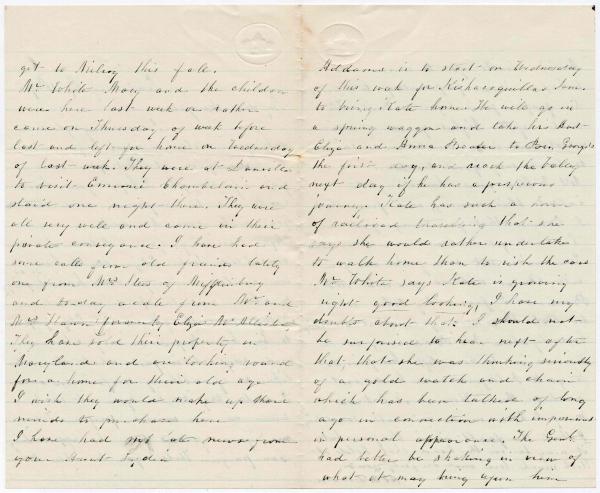 get to Milroy this fall.
Mr White Mary and the children
were here last week or rather
came on Thursday of week before
last and left for home on Wednesday
of last week. They were at Danville
to visit Emma Chamberlain and
staid one night there. They were
all very well and came in their
private conveyance. I have had
some calls from old friends lately
one from Mrs Iles of Mifflinburg
and to-day a call from Mr and
Mrs Hawn formerly Eliza McAlister
They have sold their property in
Maryland and are looking round
for a home for their old age
I wish they would make up their
minds to purchase here
I have had no late news from
your Aunt Lydia
Addams is to start on Wednesday
of this week for Kishacoquillas
to bring Kate home. He will go in
a spring waggon and take his Aunt
Eliza and Anna to Rev. George's
the first day, and reach the Valley
next day if he has a prosperous
journey. Kate has such a horror
of railroad traveling that she
says she would rather undertake
to walk home than to risk the cars
Mr White says Kate is growing
right good looking, I have my
doubts about that. I should not
be surprised to hear next after
that, that she was thinking seriously
of a gold watch and chain
which has been talked of long
ago in connection with
in personal appearance. The
had better be shaking in view of
what it may bring upon him